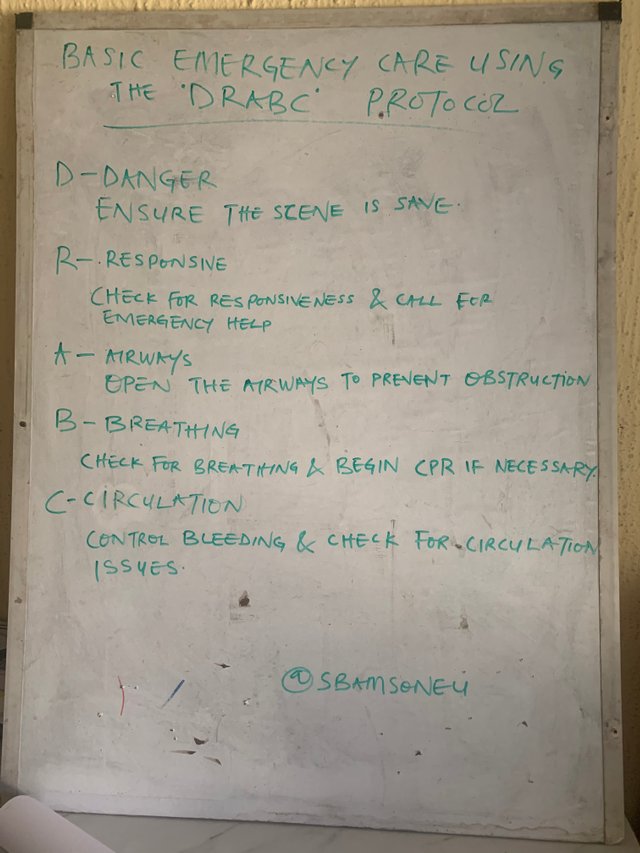 BASIC EMERGENCY CARE USING
THE 'DRABC' PROTOCOL
D - DANGER
ENSURE THE SCENE IS SAVE.
R - RESPONSIVE
CHECK FOR RESPONSIVENESS & CALL FOR
EMERGENCY HELP
A - AIRWAYS
OPEN THE AIRWAYS TO PREVENT OBSTRUCTION
B - BREATHING
CHECK FOR BREATHING & BEGIN CPR IF NECESSARY.
C - CIRCULATION
CONTROL BLEEDING & CHECK FOR CIRCULATION
ISSUES.
@SBAMSONEU